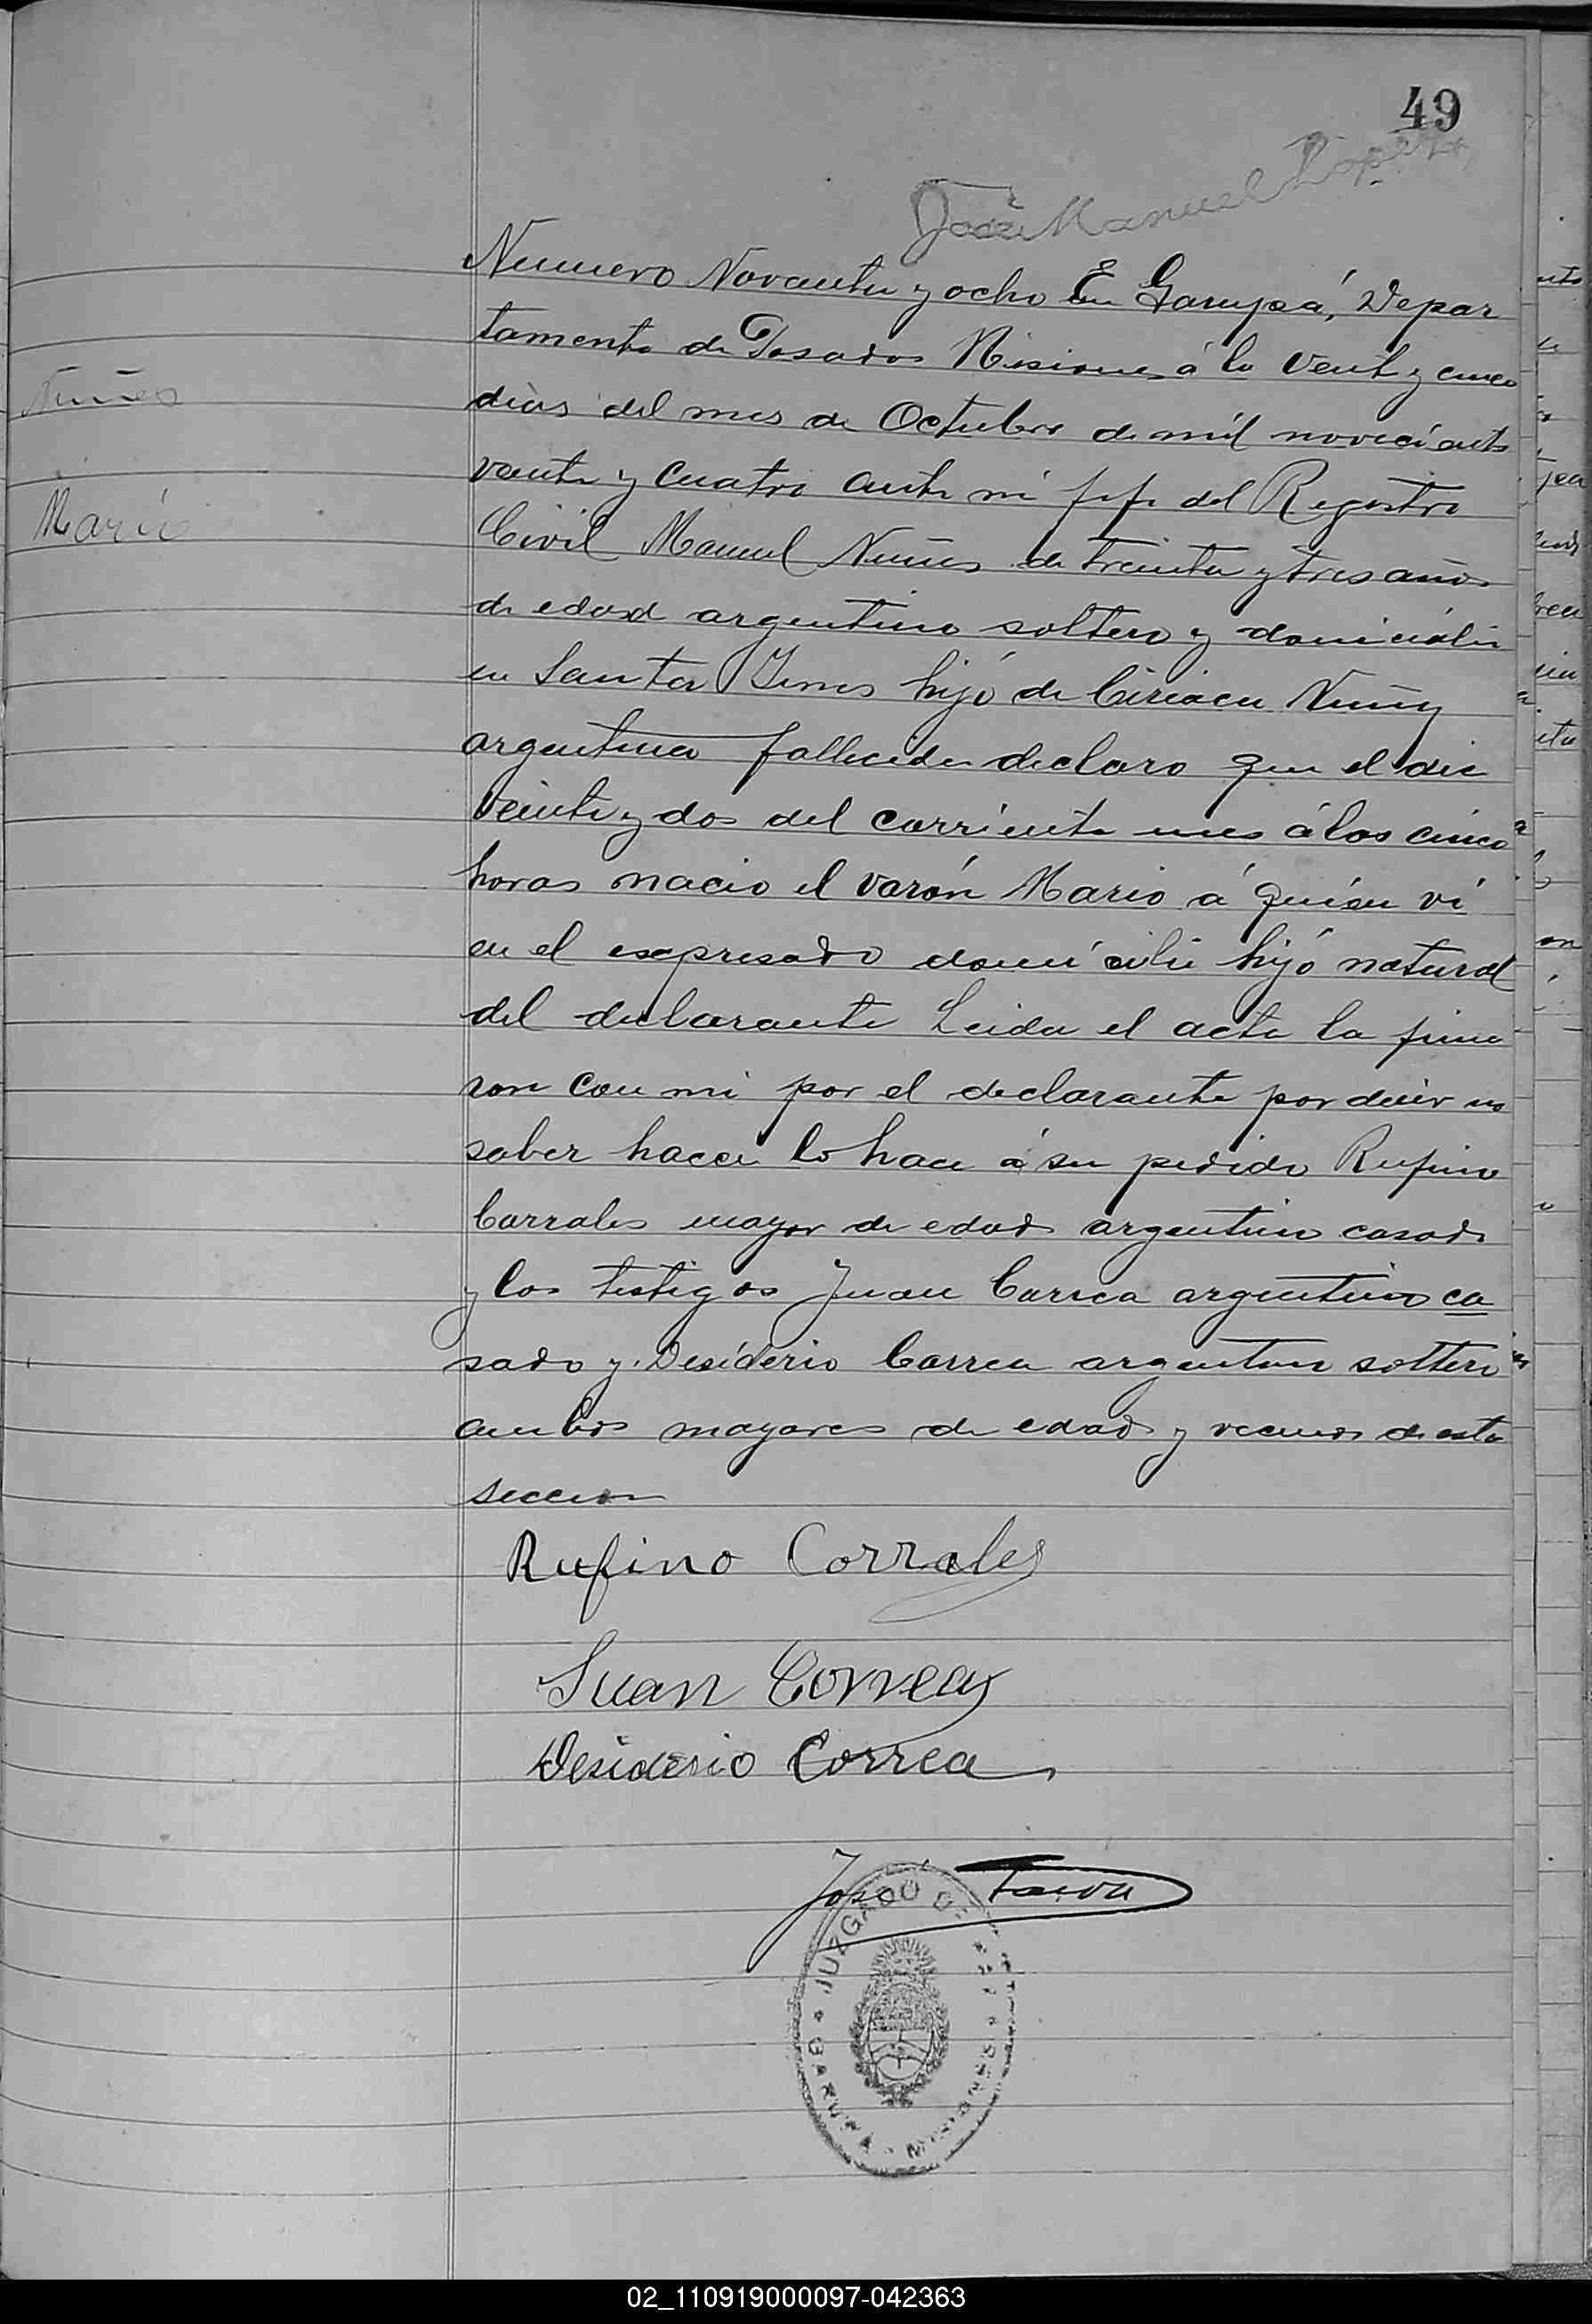 49
José Manuel Lopez
Numero Novanta y ocho En Garupá, Depar
tamento de Posadas Misiones á lo Veint y cinco
Nuñes
días del mes de Octubre de mil novecient
veinte y Cuatro ante mi jefe del Registro
Mario
Civil Manuel Nuñes de treinta y tres años
de edad argentino soltero y domicilio
en Santa Ines hijo de Ciriaca Nuñez
argentina fallecida declaro que el dia
Veinte y dos del corriente mes á las cinco
horas nacio el varón Mario á quién ví
en el expresado domicilio hijó natural
del declarante Leida el acta la firma
ron con mi por el declarante por decir no
saber hacer lo hace á su pedido Rufino
Corrales mayor de edad argentino casado
y los testigos Juan Correa argentino ca
sado y Desiderio Correa argentino soltero
ambos mayores de edad y vecinos de esta
seccion
Rufino Corrales
Juan Correa
Desiderio Correa
José
JUZGADO DE PAZ
GARUPA - MISIONES
02_110919000097-042363